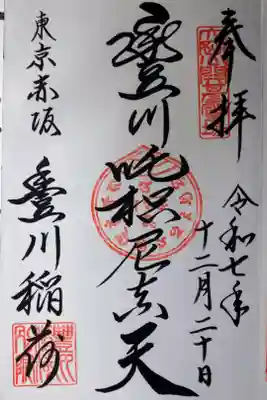 奉拝
令和七年
十二月二十日
豊川吒枳尼真天
東京赤坂
豊川稲荷